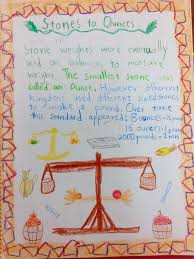 Stones to Ounces
Stone weights were eventually
used on balances to measure
weight. The smallest stone was
called an Ounce. However different
Kingdoms used different sized stones
to make a pound. Over time
this standard appeared: 8 ounces = ½ pound
16 ounces = 1 pound
2000 pounds = 1 ton